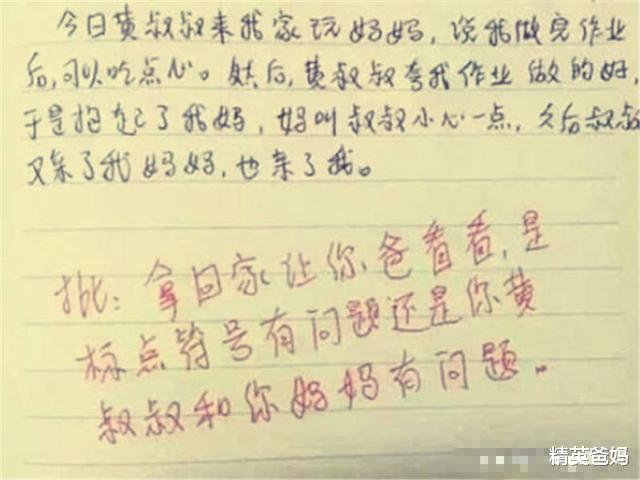 今日黄叔叔来我家玩妈妈,说我做完作业
后,可以吃点心。然后,黄叔叔夸我作业做的好,
于是抱起了我妈,妈叫叔叔小心一点,之后叔叔
又亲了我妈妈,也亲了我。
批:拿回家让你爸看看,是
标点符号有问题还是你黄
叔叔和你妈妈有问题。
精英爸妈